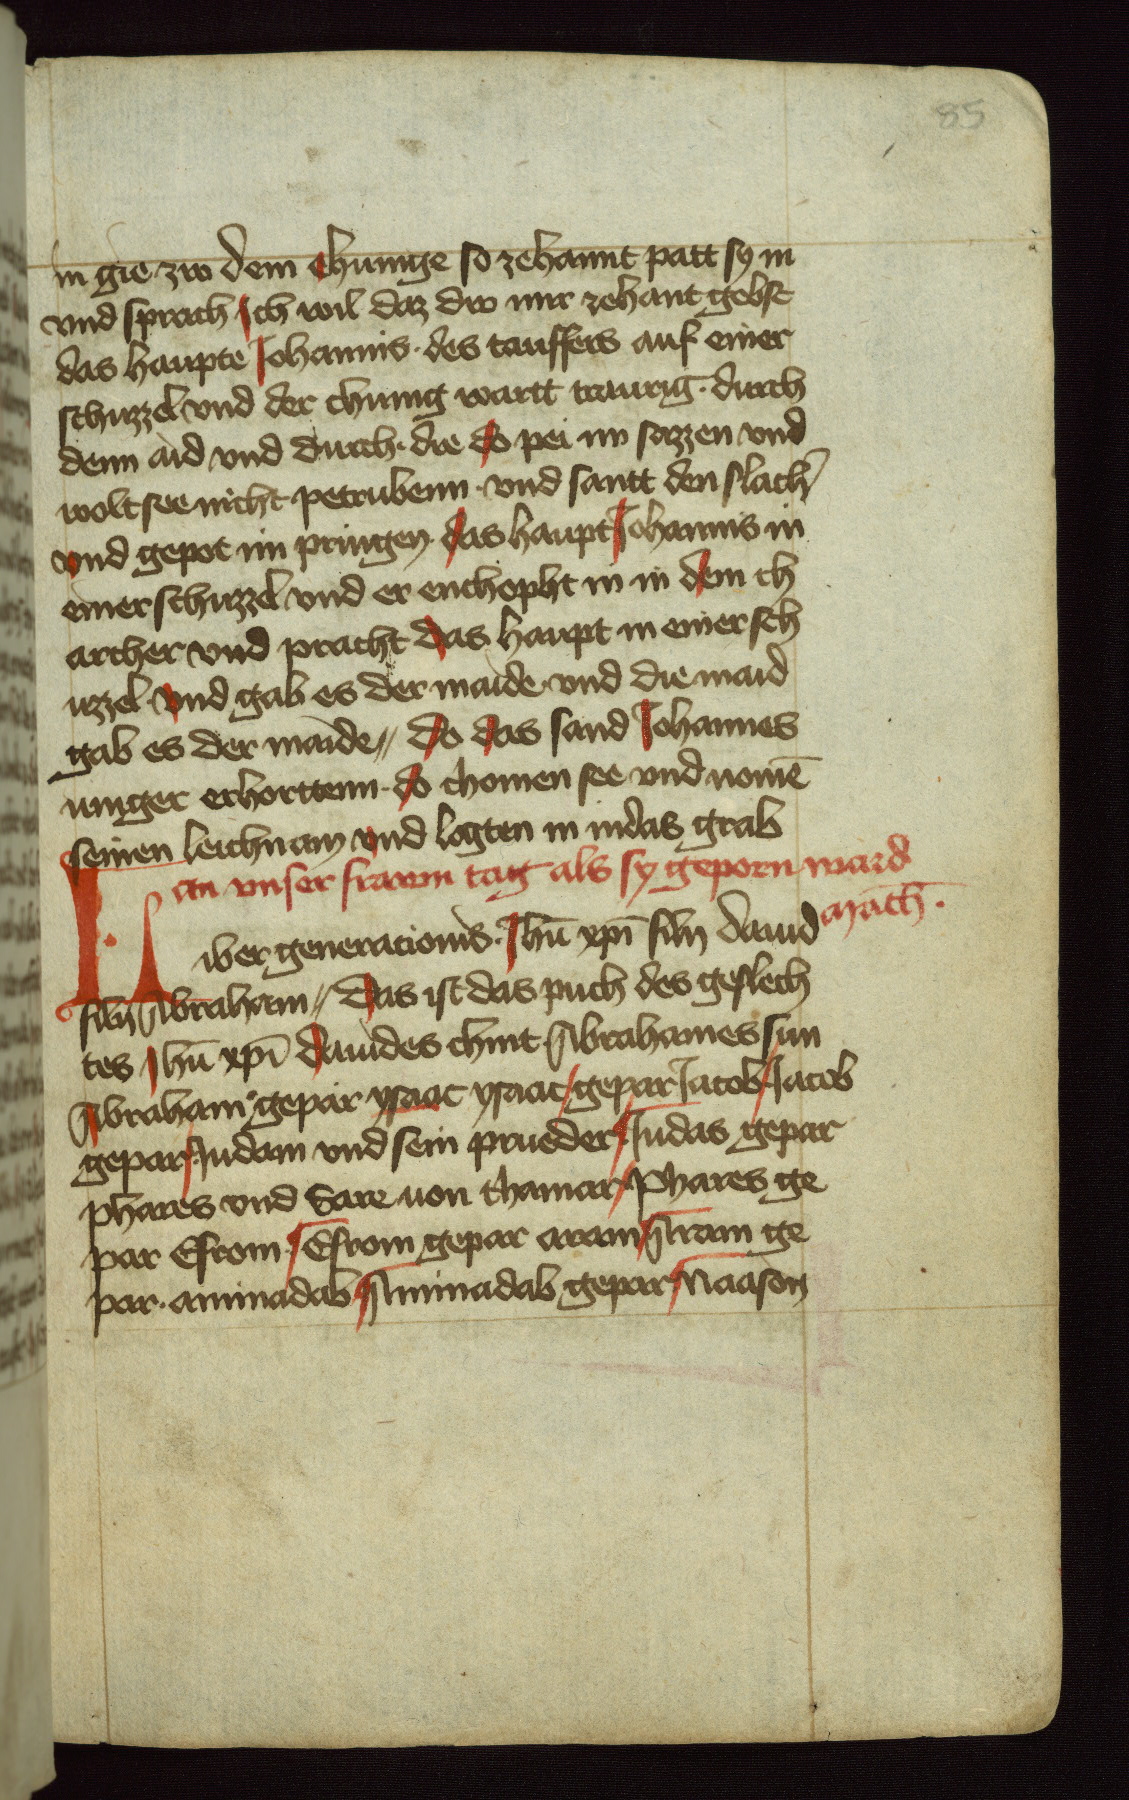 85
in gie zw dem chunige so zehannt patt sy in
vnd sprach Ich wil daz dw mir zehant gebst
das haupte Johannis · des tauffers auf einer
schuzzel vnd der chunig wartt traurig · durch
denn aid vnd durch · die do pei im sazzen vnd
wolt see nicht petrubenn · vnd santt den slach̉
vnd gepot im pringen · das haupt Johannis in
einer schuzzel vnd er enchopht in in dem ch
archer vnd pracht das haupt in einer sch
uzzel · vnd gab es der maide · vnd die maid
gab es der maide // do das sand Johannes
iunger erhorttenn · do chomen see vnd nomē
seinen leichnam vnd logten in in das grab
an vnser frawn tag als sy geporn ward
math̄ ·
Liber generacionis · Jhū xpī filij dauid
filij Abraham // Das ist das puch des geslech
tes Jhū xpī dauides chint · Abrahames sun
Abraham gepar ysaac ysaac gepar Jacob Jacob
gepar Judam vnd sein prueder Judas gepar
phares vnd Sare von thamar Phares ge
par Esrom · Esrom gepar aram Aram ge
par · aminadab Aminadab gepar Naason